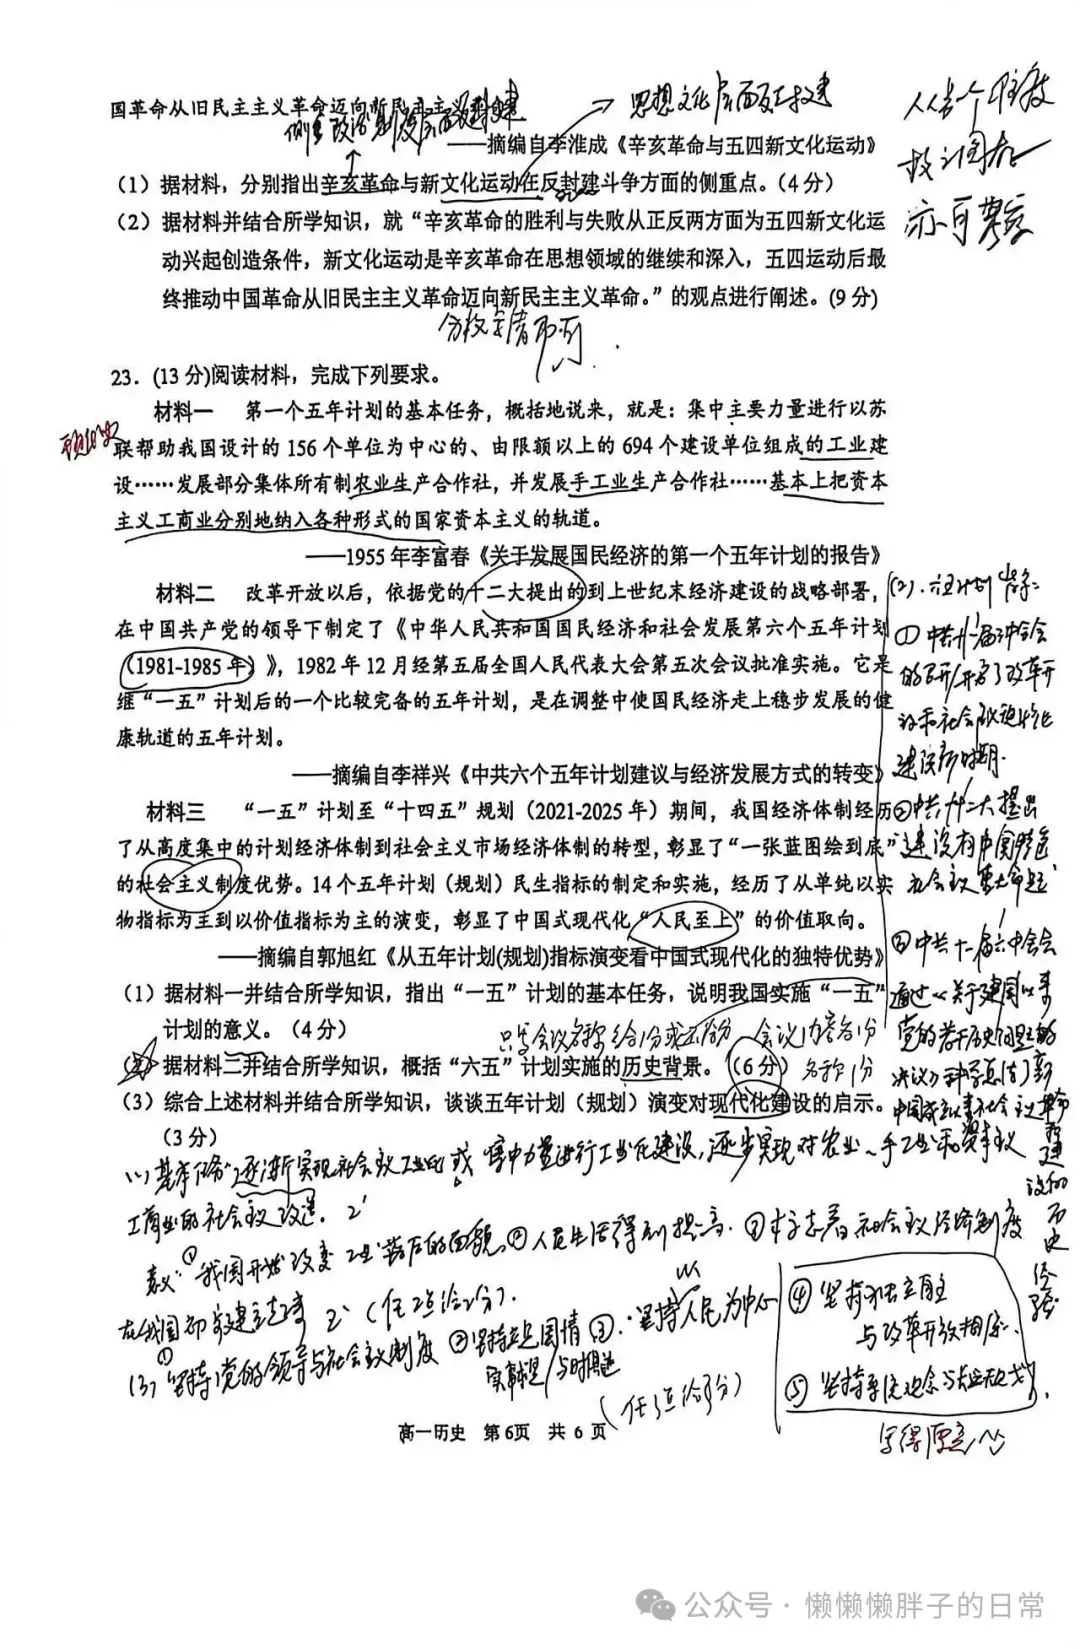 国革命从旧民主主义革命迈向新民主主义革命
侧重政治制度层面反封建
思想文化层面反封建
——摘编自李淮成《辛亥革命与五四新文化运动》
(1) 据材料，分别指出辛亥革命与新文化运动在反封建斗争方面的侧重点。(4分)
(2) 据材料并结合所学知识，就“辛亥革命的胜利与失败从正反两方面为五四新文化运
动兴起创造条件，新文化运动是辛亥革命在思想领域的继续和深入，五四运动后最
终推动中国革命从旧民主主义革命迈向新民主主义革命。”的观点进行阐述。(9分)
23．(13分)阅读材料，完成下列要求。
材料一 第一个五年计划的基本任务，概括地说来，就是：集中主要力量进行以苏
联帮助我国设计的156个单位为中心的、由限额以上的694个建设单位组成的工业建
设……发展部分集体所有制农业生产合作社，并发展手工业生产合作社……基本上把资本
主义工商业分别地纳入各种形式的国家资本主义的轨道。
——1955年李富春《关于发展国民经济的第一个五年计划的报告》
材料二 改革开放以后，依据党的十二大提出的到上世纪末经济建设的战略部署，
在中国共产党的领导下制定了《中华人民共和国国民经济和社会发展第六个五年计划
（1981-1985年）》，1982年12月经第五届全国人民代表大会第五次会议批准实施。它是
继“一五”计划后的一个比较完备的五年计划，是在调整中使国民经济走上稳步发展的健
康轨道的五年计划。
——摘编自李祥兴《中共六个五年计划建议与经济发展方式的转变》
材料三 “一五”计划至“十四五”规划（2021-2025年）期间，我国经济体制经历
了从高度集中的计划经济体制到社会主义市场经济体制的转型，彰显了“一张蓝图绘到底”
的社会主义制度优势。14个五年计划（规划）民生指标的制定和实施，经历了从单纯以实
物指标为主到以价值指标为主的演变，彰显了中国式现代化“人民至上”的价值取向。
——摘编自郭旭红《从五年计划(规划)指标演变看中国式现代化的独特优势》
(1) 据材料一并结合所学知识，指出“一五”计划的基本任务，说明我国实施“一五”
计划的意义。（4分）
只写会议名称给1分 会议内容各1分
据材料二并结合所学知识，概括“六五”计划实施的历史背景。(6分)
名称1分
(3) 综合上述材料并结合所学知识，谈谈五年计划（规划）演变对现代化建设的启示。
(3分)
(1) 基本任务：逐渐实现社会主义工业化或集中力量进行工业化建设，逐步实现对农业、手工业和资本主义
工商业的社会主义改造。2'
意义：①我国开始改变工业落后的面貌，②人民生活得到提高. ③标志着社会主义经济制度
在我国初步建立起来 2' (任2点给2分).
(3) ①坚持党的领导与社会主义制度 ②坚持立足国情 ③坚持人民为中心
实事求是 与时俱进
(任3点给3分)
④坚持独立自主
与改革开放相
⑤坚持系统观念与
(2).
①中共十一届三中全会
的召开/开启了改革开
放和社会主义现代化
建设新时期.
②中共十二大提出
建设有中国特色
社会主义重大命题
③中共十一届六中全会
通过《关于建国以来
党的若干历史问题的
决议》科学总结了新
中国成立以来社会主义革命
和建设的历史经验
高一历史 第6页 共6页
公众号 · 懒懒懒胖子的日常